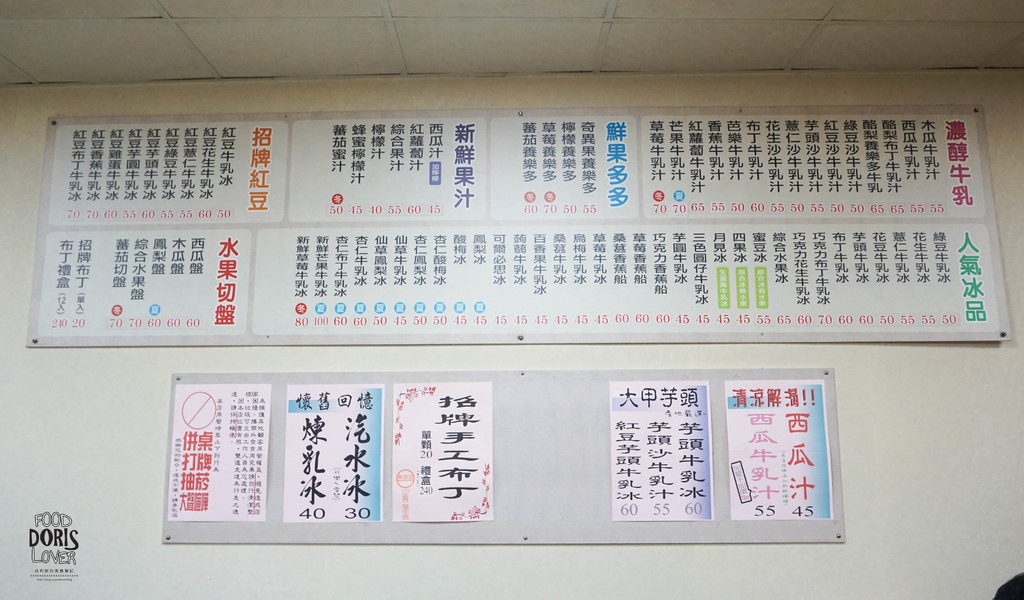 濃醇牛乳
木瓜牛乳汁 55
西瓜牛乳汁 55
酪梨布丁牛乳汁 65
酪梨養樂多牛乳 65
綠豆沙牛乳汁 55
紅豆沙牛乳汁 55
芋頭沙牛乳汁 55
薏仁沙牛乳汁 50
花生沙牛乳汁 55
布丁牛乳汁 60
芭樂牛乳汁 55
香蕉牛乳汁 55
紅蘿蔔牛乳汁 65
芒果牛乳汁 夏 70
草莓牛乳汁 冬 70
鮮果多多
奇異果養樂多 55
檸檬養樂多 50
草莓養樂多 冬 70
蕃茄養樂多 冬 60
新鮮果汁
西瓜汁 45
紅蘿蔔汁 60
綜合果汁 55
檸檬汁 40
蜂蜜檸檬汁 45
蕃茄蜜汁 冬 50
招牌紅豆
紅豆牛乳冰 50
紅豆花生牛乳冰 60
紅豆薏仁牛乳冰 55
紅豆綠豆牛乳冰 55
紅豆芋頭牛乳冰 60
紅豆芋圓牛乳冰 55
紅豆雞蛋牛乳冰 60
紅豆香蕉牛乳冰 70
紅豆布丁牛乳冰 70
人氣冰品
綠豆牛乳冰 50
花生牛乳冰 55
薏仁牛乳冰 55
花豆牛乳冰 50
芋頭牛乳冰 60
布丁牛乳冰 60
巧克力布丁牛乳冰 70
巧克力花生牛乳冰 60
綜合水果冰 65
蜜豆冰 55
四果冰 45
月見冰 45
三色圓仔牛乳冰 45
芋圓牛乳冰 45
巧克力香蕉船 60
草莓香蕉船 60
桑葚香蕉船 60
草莓牛乳冰 45
烏梅牛乳冰 45
桑葚牛乳冰 45
百香果牛乳冰 45
蒟蒻牛乳冰 45
可爾必思冰 45
鳳梨冰 夏 45
酸梅冰 夏 45
杏仁酸梅冰 夏 50
杏仁鳳梨冰 夏 50
仙草牛乳冰 夏 45
仙草鳳梨冰 夏 50
杏仁牛乳冰 夏 50
杏仁布丁牛乳冰 夏 60
新鮮芒果牛乳冰 夏 100
新鮮草莓牛乳冰 冬 80
水果切盤
西瓜盤 60
木瓜盤 60
鳳梨盤 夏 60
綜合水果盤 70
蕃茄切盤 冬 70
招牌布丁(單入) 20
布丁禮盒(12入) 240
清涼解渴!!
西瓜汁 45
西瓜牛乳汁 55
大甲芋頭
產地嚴選
芋頭牛乳冰 60
芋頭沙牛乳汁 55
紅豆芋頭牛乳冰 60
招牌手工布丁
單顆20
禮盒240
懷舊回憶
汽水冰 30
煉乳冰 40
本店用餐時禁止下列行為
併桌
打牌
抽菸
大聲喧嘩
FOOD
DORIS
LOVER